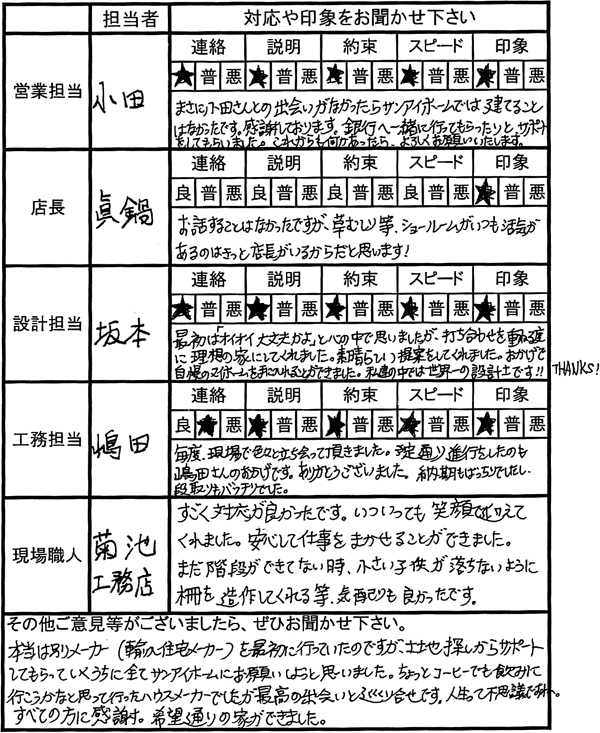 担当者 対応や印象をお聞かせ下さい
営業担当 小田
連絡 説明 約束 スピード 印象
★普悪 ★普悪 ★普悪 ★普悪 ★普悪
まさに小田さんとの出会いがなかったらサンアイホームでは建てること
はなかったです。感謝しております。銀行へ一緒に行ってもらったりと、サポート
をしてもらいました。これからも何かあったら、よろしくお願いいたします。
店長 眞鍋
連絡 説明 約束 スピード 印象
良普悪 良普悪 良普悪 良普悪 ★普悪
お話することはなかったですが、草むしり等、ショールームがいつも活気が
あるのはきっと店長がいるからだと思います!
設計担当 坂本
連絡 説明 約束 スピード 印象
★普悪 ★普悪 ★普悪 ★普悪 ★普悪
最初は「オイオイ大丈夫かよ」と心の中で思いましたが、打ち合わせを重ねる度
に理想の家にしてくれました。素晴らしい提案をしてくれました。おかげで
自慢のマイホームを手に入れることができました。私達の中では世界一の設計士です!! THANKS!
工務担当 嶋田
連絡 説明 約束 スピード 印象
良★悪 ★普悪 ★普悪 ★普悪 ★普悪
毎度、現場で色々と立ち会って頂きました。予定通り進行したのも
嶋田さんのおかげです。ありがとうございました。納期もばっちりでしたし、
段取りもバッチリでした。
現場職人 菊池工務店
すごく対応が良かったです。いついっても笑顔で迎えて
くれました。安心して仕事をまかせることができました。
まだ階段ができてない時、小さい子供が落ちないように
柵を造作してくれる等、気配りも良かったです。
その他ご意見等がございましたら、ぜひお聞かせ下さい。
本当は別メーカー(輸入住宅メーカー)を最初に行っていたのですが、土地探しからサポート
してもらっていくうちに全てサンアイホームにお願いしようと思いました。ちょっとコーヒーでも飲みに
行こうかなと思って行ったハウスメーカーでしたが最高の出会いとめぐり合せです。人生って不思議ですね。
すべての方に感謝す。希望通りの家ができました。